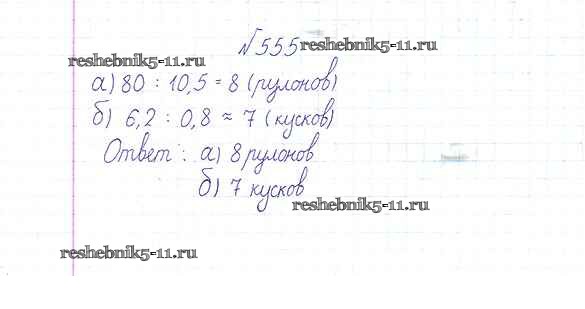 №555 reshebnik5-11.ru
reshebnik5-11.ru
а) 80 : 10,5 = 8 (рулонов)
б) 6,2 : 0,8 ≈ 7 (кусков)
Ответ: а) 8 рулонов
б) 7 кусков
reshebnik5-11.ru
reshebnik5-11.ru